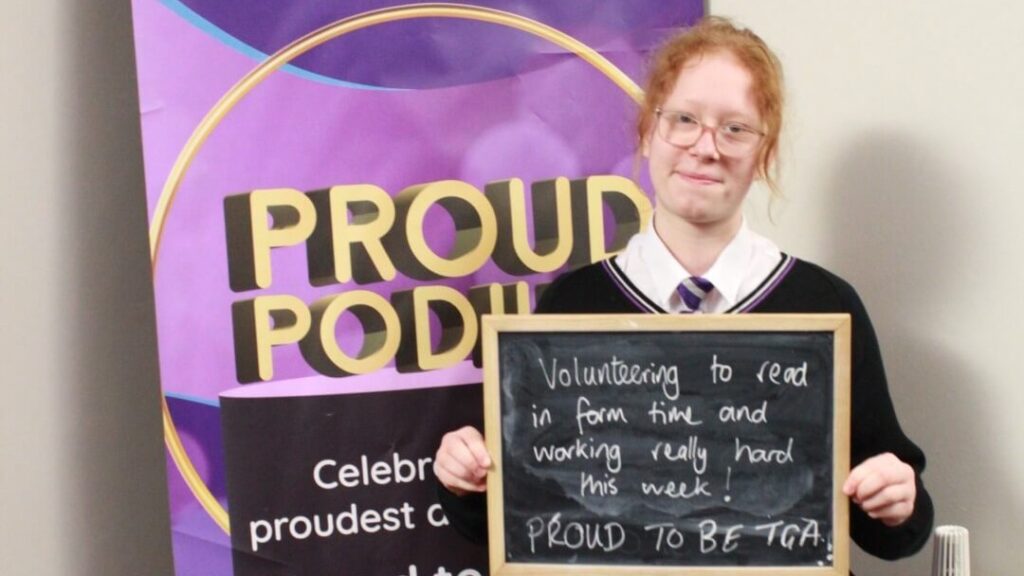 PROUD
PODIU
Celebr
proudest a
Volunteering to read
in form time and
working really hard
this week!
PROUD TO BE TGA!